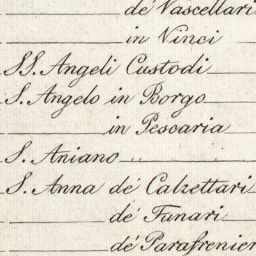 de' Vascellari
in Vinci
SS. Angeli Custodi
S. Angelo in Borgo
in Pescaria
S. Aniano
S. Anna de' Calzettari
de' Funari
de' Parafrenier